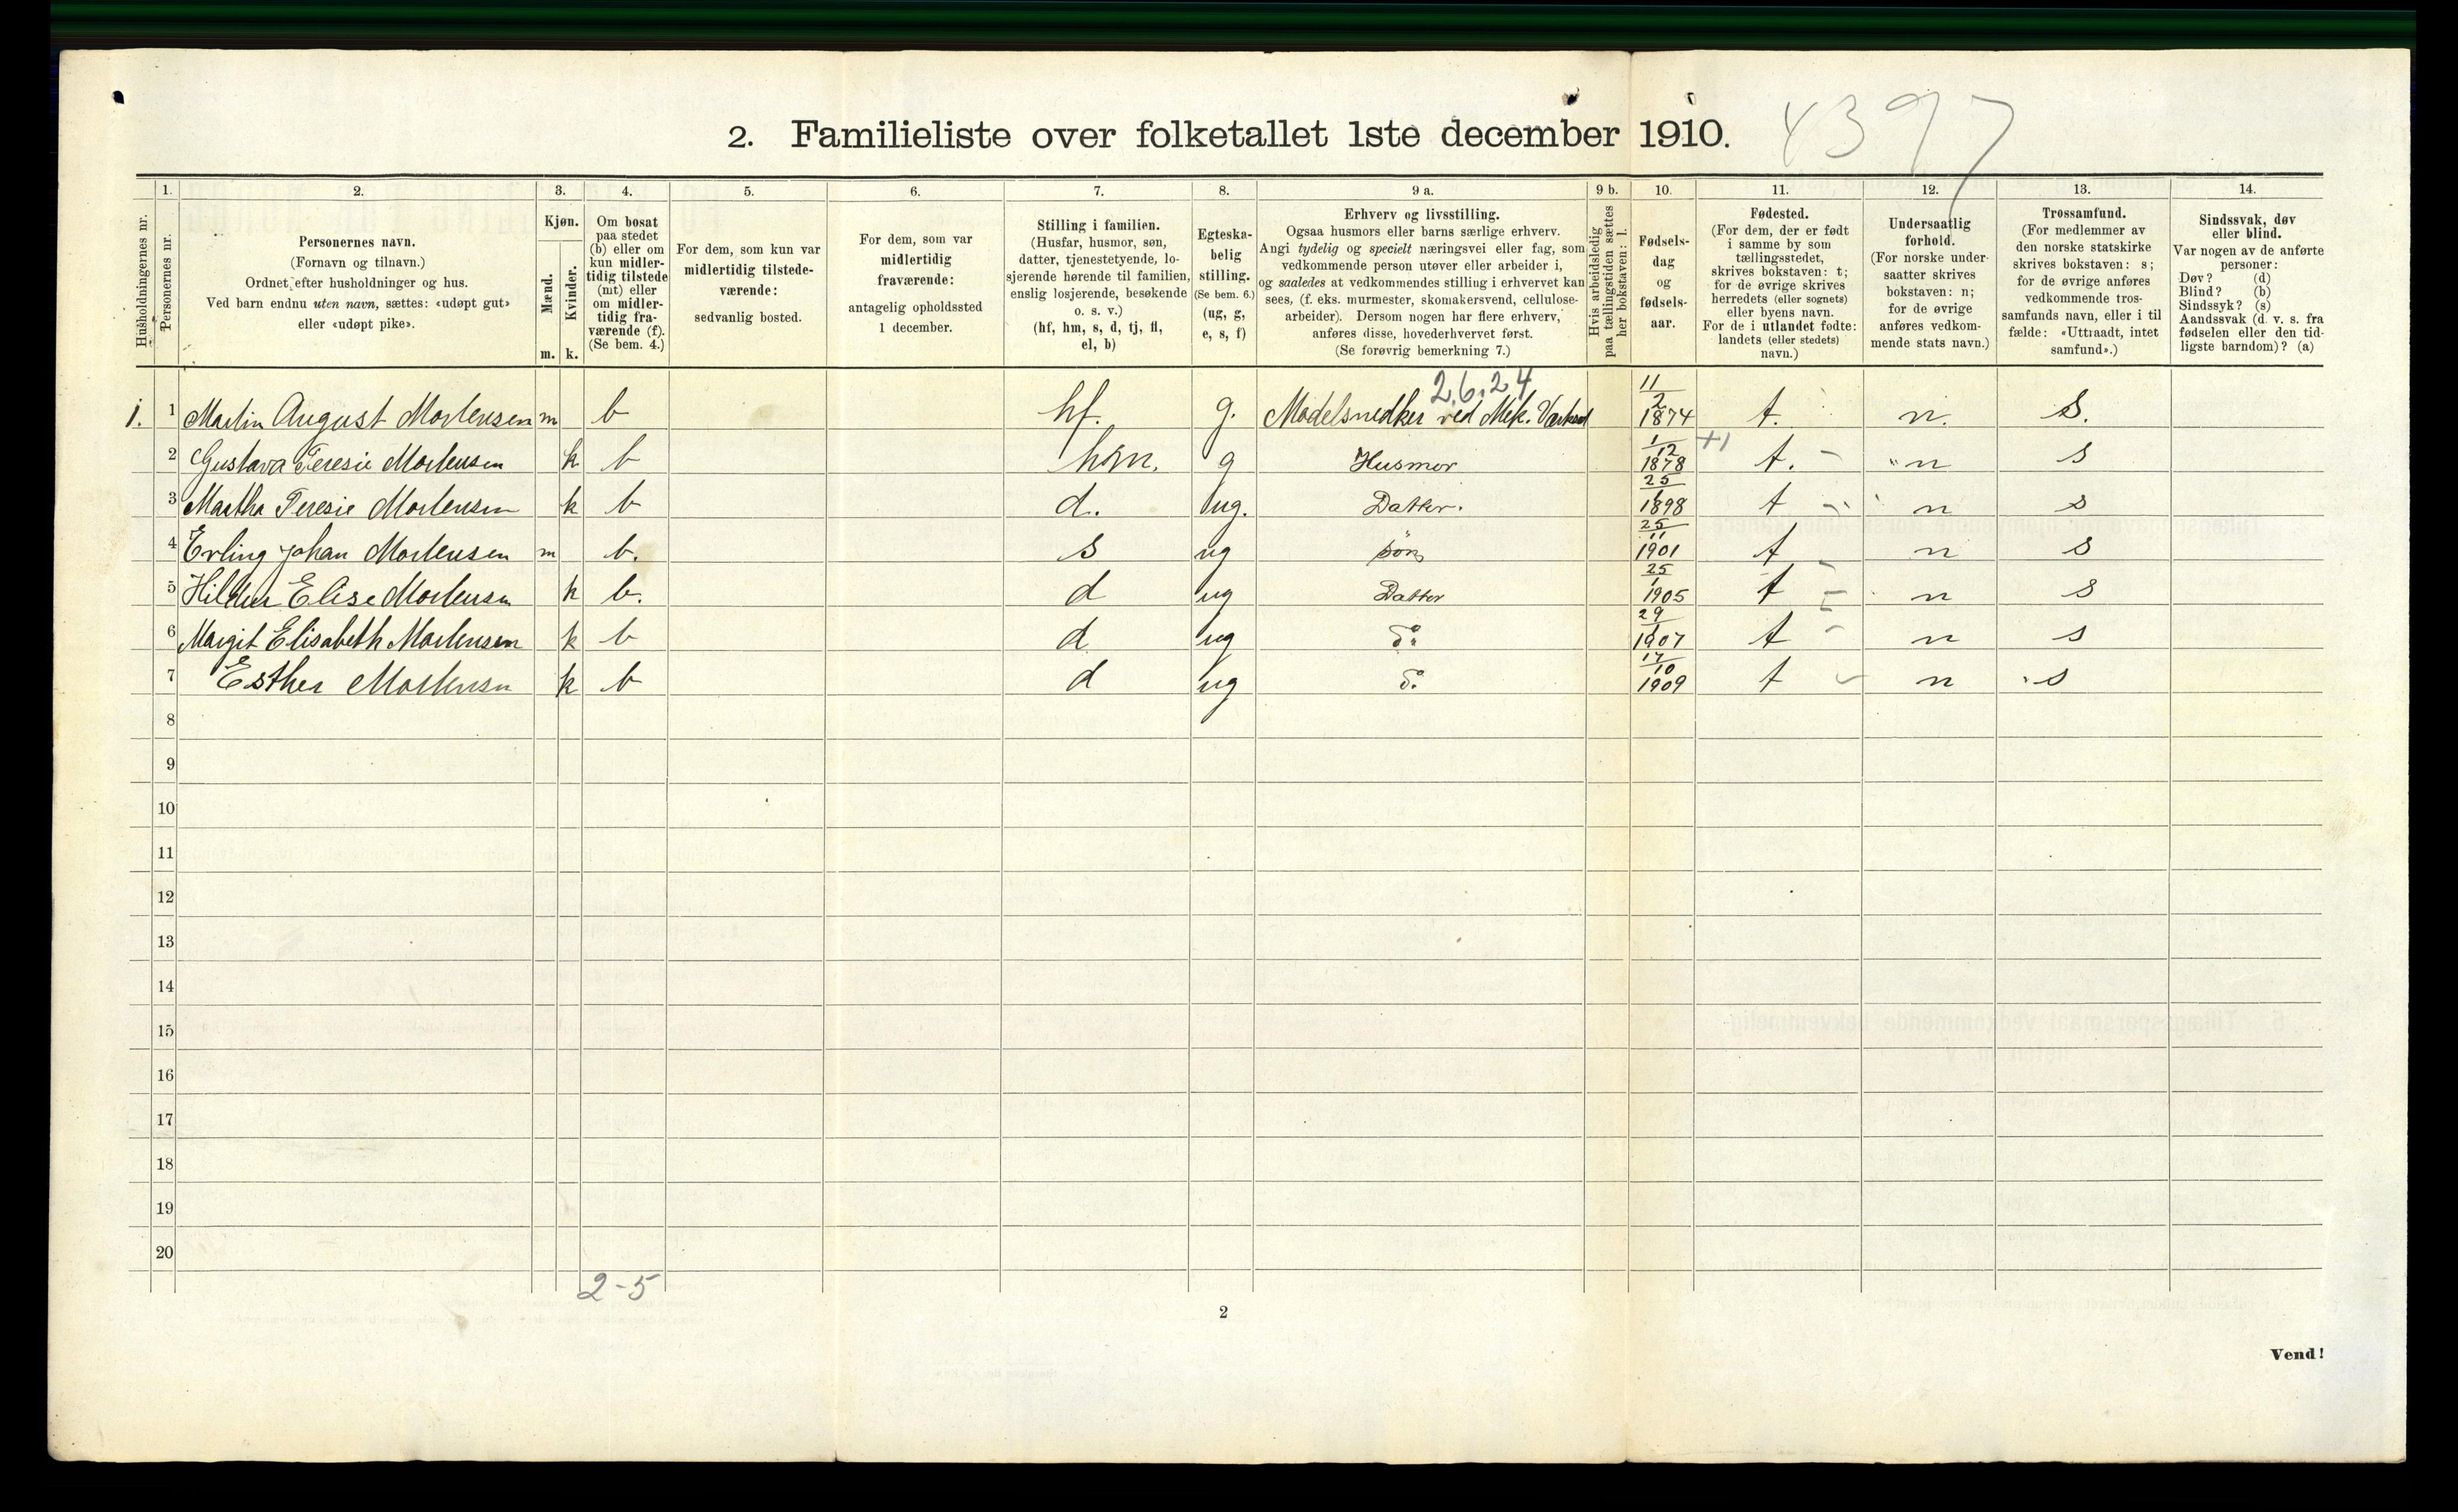 4397
2. Familieliste over folketallet 1ste december 1910.
Husholdningernes nr.
1. Personernes nr.
2. Personernes navn.
(Fornavn og tilnavn.)
Ordnet efter husholdninger og hus.
Ved barn endnu uten navn, sættes: «udøpt gut»
eller «udøpt pike».
3. Kjøn.
Mænd. m.
Kvinder. k.
4. Om bosat
paa stedet
(b) eller om
kun midler-
tidig tilstede
(mt) eller
om midler-
tidig fra-
værende (f).
(Se bem. 4.)
5. For dem, som kun var
midlertidig tilstede-
værende:
sedvanlig bosted.
6. For dem, som var
midlertidig
fraværende:
antagelig opholdssted
1 december.
7. Stilling i familien.
(Husfar, husmor, søn,
datter, tjenestetyende, lo-
sjerende hørende til familien,
enslig losjerende, besøkende
o. s. v.)
(hf, hm, s, d, tj, fl,
el, b)
8. Egteska-
belig
stilling.
(Se bem. 6.)
(ug, g,
e, s, f)
9 a. Erhverv og livsstilling.
Ogsaa husmors eller barns særlige erhverv.
Angi tydelig og specielt næringsvei eller fag, som
vedkommende person utøver eller arbeider i,
og saaledes at vedkommendes stilling i erhvervet kan
sees, (f. eks. murmester, skomakersvend, cellulose-
arbeider). Dersom nogen har flere erhverv,
anføres disse, hovederhvervet først.
(Se forøvrig bemerkning 7.)
9 b. Hvis arbeidsledig
paa tællingstiden sættes
her bokstaven: l.
10. Fødsels-
dag
og
fødsels-
aar.
11. Fødested.
(For dem, der er født
i samme by som
tællingsstedet,
skrives bokstaven: t;
for de øvrige skrives
herredets (eller sognets)
eller byens navn.
For de i utlandet fødte:
landets (eller stedets)
navn.)
12. Undersaatlig
forhold.
(For norske under-
saatter skrives
bokstaven: n;
for de øvrige
anføres vedkom-
mende stats navn.)
13. Trossamfund.
(For medlemmer av
den norske statskirke
skrives bokstaven: s;
for de øvrige anføres
vedkommende tros-
samfunds navn, eller i til
fælde: «Uttraadt, intet
samfund».)
14. Sindssvak, døv
eller blind.
Var nogen av de anførte
personer:
Døv? (d)
Blind? (b)
Sindssyk? (s)
Aandssvak (d. v. s. fra
fødselen eller den tid-
ligste barndom)? (a)
2.6.24
1. 1 Martin August Mortensen m b hf. g. Modelsnedker ved Mek. Værksted 11/2 1874 t. n. s.
2 Gustava Teresie Mortensen k b hm. g Husmor 1/12 1878 t. n s
3 Martha Teresie Mortensen k b d. ug. Datter. 25 1898 t n s
4 Erling Johan Mortensen m b. s ug Søn 25/11 1901 t n s
5 Hildur Elise Mortensen k b. d ug Datter 25/1 1905 t n s
6 Margit Elisabeth Mortensen k b d ug do 29 1907 t n s
7 Esther Mortensen k b d ug do 17/10 1909 t n s
8
9
10
11
12
13
14
15
16
17
18
19
20
2-5
2
Vend!